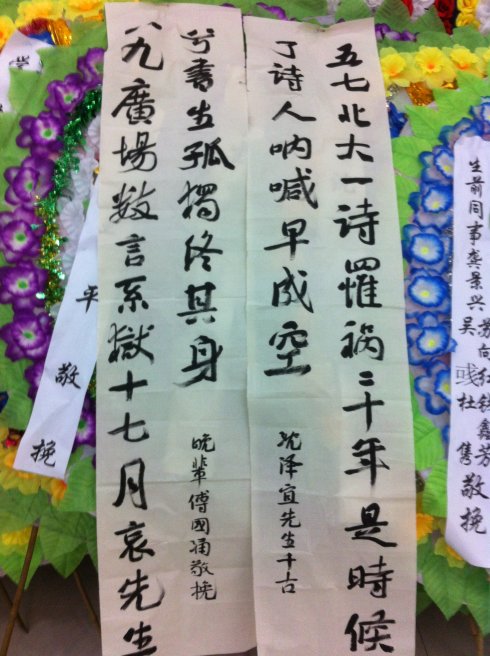 五七北大一诗罹祸二十年是時候
了诗人呐喊早成空
沈泽宜先生千古
八九廣場数言系獄十七月哀先生
兮書生孤獨终其身
晚輩傅國涌敬挽
生前同事龚景兴
向红
鑫芳
吴彧
杜隽
敬挽
平敬挽